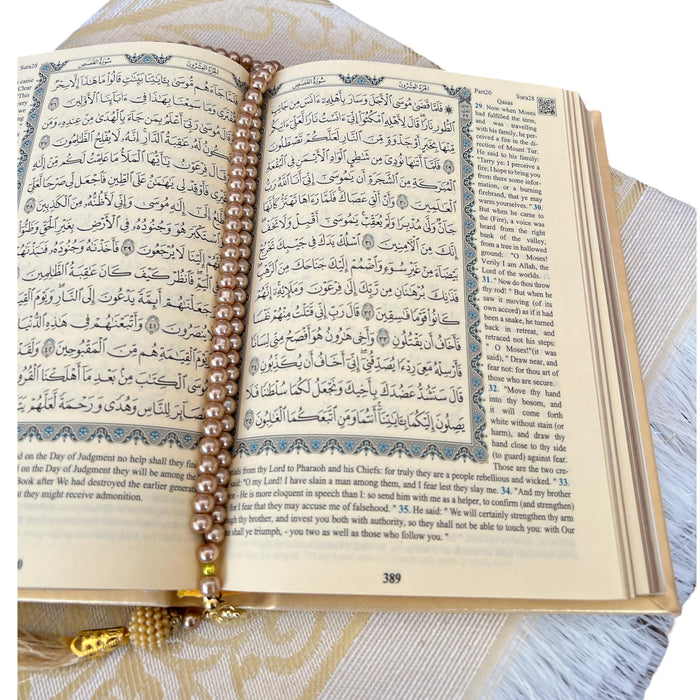 الجزء العشرون
سورة القصص
Part20 Sura28
Qasas
۞ فَلَمَّا قَضَىٰ مُوسَى ٱلْأَجَلَ وَسَارَ بِأَهْلِهِۦٓ ءَانَسَ مِن جَانِبِ
ٱلطُّورِ نَارًا قَالَ لِأَهْلِهِ ٱمْكُثُوٓا۟ إِنِّىٓ ءَانَسْتُ نَارًا لَّعَلِّىٓ ءَاتِيكُم
مِّنْهَا بِخَبَرٍ أَوْ جَذْوَةٍ مِّنَ ٱلنَّارِ لَعَلَّكُمْ تَصْطَلُونَ ٢٩
فَلَمَّآ أَتَىٰهَا نُودِىَ مِن شَٰطِئِ ٱلْوَادِ ٱلْأَيْمَنِ فِى ٱلْبُقْعَةِ
ٱلْمُبَٰرَكَةِ مِنَ ٱلشَّجَرَةِ أَن يَٰمُوسَىٰٓ إِنِّىٓ أَنَا ٱللَّهُ رَبُّ
ٱلْعَٰلَمِينَ ٣٠ وَأَنْ أَلْقِ عَصَاكَ فَلَمَّا رَءَاهَا تَهْتَزُّ كَأَنَّهَا
جَآنٌّ وَلَّىٰ مُدْبِرًا وَلَمْ يُعَقِّبْ يَٰمُوسَىٰٓ أَقْبِلْ وَلَا تَخَفْ
إِنَّكَ مِنَ ٱلْءَامِنِينَ ٣١ ٱسْلُكْ يَدَكَ فِى جَيْبِكَ تَخْرُجْ
بَيْضَآءَ مِنْ غَيْرِ سُوٓءٍ وَٱضْمُمْ إِلَيْكَ جَنَاحَكَ مِنَ ٱلرَّهْبِ
فَذَٰنِكَ بُرْهَٰنَانِ مِن رَّبِّكَ إِلَىٰ فِرْعَوْنَ وَمَلَإِي۟هِۦٓ إِنَّهُمْ
كَانُوا۟ قَوْمًا فَٰسِقِينَ ٣٢ قَالَ رَبِّ إِنِّى قَتَلْتُ مِنْهُمْ نَفْسًا
فَأَخَافُ أَن يَقْتُلُونِ ٣٣ وَأَخِى هَٰرُونُ هُوَ أَفْصَحُ مِنِّى لِسَانًا
فَأَرْسِلْهُ مَعِىَ رِدْءًا يُصَدِّقُنِىٓ إِنِّىٓ أَخَافُ أَن يُكَذِّبُونِ ٣٤
قَالَ سَنَشُدُّ عَضُدَكَ بِأَخِيكَ وَنَجْعَلُ لَكُمَا سُلْطَٰنًا فَلَا
يَصِلُونَ إِلَيْكُمَا بِـَٔايَٰتِنَآ أَنتُمَا وَمَنِ ٱتَّبَعَكُمَا ٱلْغَٰلِبُونَ ٣٥
29. Now when Moses
had fulfilled the term,
and was travelling
with his family, he per-
ceived a fire in the di-
rection of Mount Tur.
He said to his family:
"Tarry ye: I perceive a
fire; I hope to bring you
from there some infor-
mation, or a burning
firebrand, that ye may
warm yourselves." 30.
But when he came to
the (Fire), a voice was
heard from the right
bank of the valley,
from a tree in hallowed
ground: "O Moses!
Verily I am Allah, the
Lord of the worlds...
31. "Now do thou throw
thy rod! " But when he
saw it moving (of its
own accord) as if it had
been a snake, he turned
back in retreat, and
retraced not his steps:
" O Moses!"(it was
said), " Draw near, and
fear not: for thou art of
those who are secure.
32. "Move thy hand
into thy bosom, and
it will come forth
white without stain (or
harm), and draw thy
hand close to thy side
(to guard) against fear.
Those are the two cre-
ntials from thy Lord to Pharaoh and his Chiefs: for truly they are a people rebellious and wicked. " 33.
said: "O my Lord! I have slain a man among them, and I fear lest they slay me. 34. "And my brother
- He is more eloquent in speech than I: so send him with me as a helper, to confirm (and strengthen)
for I fear that they may accuse me of falsehood. " 35. He said: " We will certainly strengthen thy arm
gh thy brother, and invest you both with authority, so they shall not be able to touch you: with Our
shall ye triumph, - you two as well as those who follow you. "
389
الجزء العشرون
سورة القصص
Sura28
فَلَمَّا جَآءَهُم مُّوسَىٰ بِـَٔايَٰتِنَا بَيِّنَٰتٍ قَالُوا۟ مَا هَٰذَآ إِلَّا سِحْرٌ
وَمَا سَمِعْنَا بِهَٰذَا فِىٓ ءَابَآئِنَا ٱلْأَوَّلِينَ
مُوسَىٰ رَبِّىٓ أَعْلَمُ بِمَن جَآءَ بِٱلْهُدَىٰ مِنْ عِندِهِۦ وَمَن
لَهُۥ عَٰقِبَةُ ٱلدَّارِ إِنَّهُۥ لَا يُفْلِحُ
قَالَ فِرْعَوْنُ يَٰٓأَيُّهَا ٱلْمَلَأُ مَا عَلِمْتُ لَكُم مِّنْ إِلَٰهٍ
فَأَوْقِدْ لِى يَٰهَٰمَٰنُ عَلَى ٱلطِّينِ فَٱجْعَل لِّى
إِلَٰهِ مُوسَىٰ وَإِنِّى لَأَظُنُّهُۥ مِنَ ٱلْكَٰذِبِينَ
هُوَ وَجُنُودُهُۥ فِى ٱلْأَرْضِ بِغَيْرِ ٱلْحَقِّ وَظَنُّوٓا۟
لَا يُرْجَعُونَ ٣٩ فَأَخَذْنَٰهُ وَجُنُودَهُۥ فَنَبَذْنَٰهُمْ
ٱلْيَمِّ فَٱنظُرْ كَيْفَ كَانَ عَٰقِبَةُ
وَجَعَلْنَٰهُمْ أَئِمَّةً يَدْعُونَ إِلَى ٱلنَّارِ وَيَوْمَ ٱلْقِيَٰمَةِ
يُنصَرُونَ ٤١ وَأَتْبَعْنَٰهُمْ فِى هَٰذِهِ ٱلدُّنْيَا
ٱلْقِيَٰمَةِ هُم مِّنَ ٱلْمَقْبُوحِينَ ٤٢ وَلَقَدْ
ٱلْكِتَٰبَ مِنۢ بَعْدِ مَآ أَهْلَكْنَا
بَصَآئِرَ لِلنَّاسِ وَهُدًى وَرَحْمَةً لَّعَلَّهُمْ
came
Clear
"This
sorcery
on the Day of Judgment no help shall they find
on the Day of Judgment they will be among the
Book after We had destroyed the earlier generat
they might receive admonition.